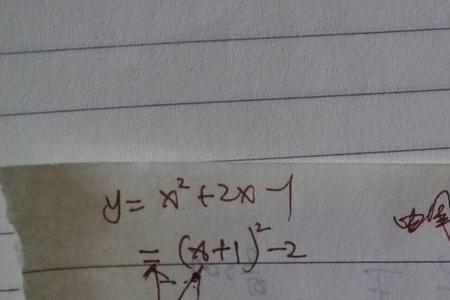 y = x² + 2x - 1
= (x+1)² - 2